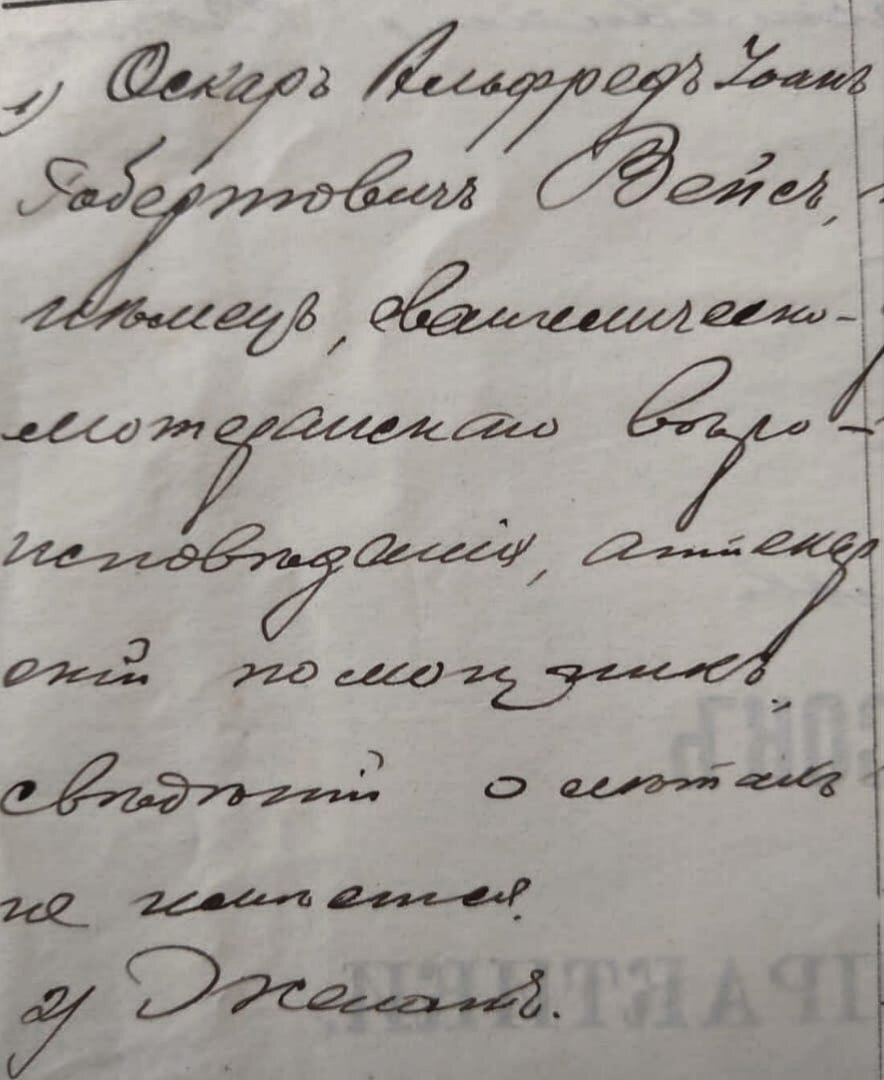 1) Оскаръ Альфредъ Іоанъ
Робертовичъ Вейсъ,
нѣмецъ, евангелическо-
лютеранскаго вѣро-
исповѣданія, аптекар
скій помощникъ,
свѣдѣній о лѣтахъ
не имѣется.
2) Женатъ.